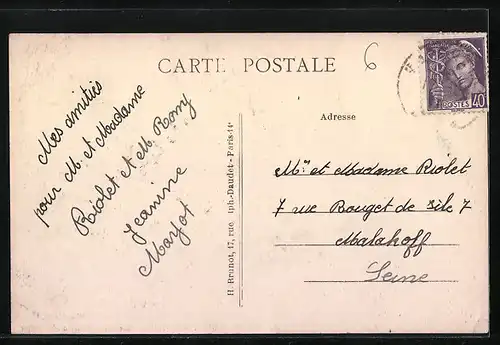 CARTE POSTALE
6
POSTES 40
Mes amitiés
pour M. et Madame
Riolet et M. Romy
Jeanine
Mayot
H. Brunot, 17, rue Alph.-Daudet - Paris-14ᵉ
Adresse
Mr et Madame Riolet
7 rue Bouget de sile 7
Malakoff
Seine